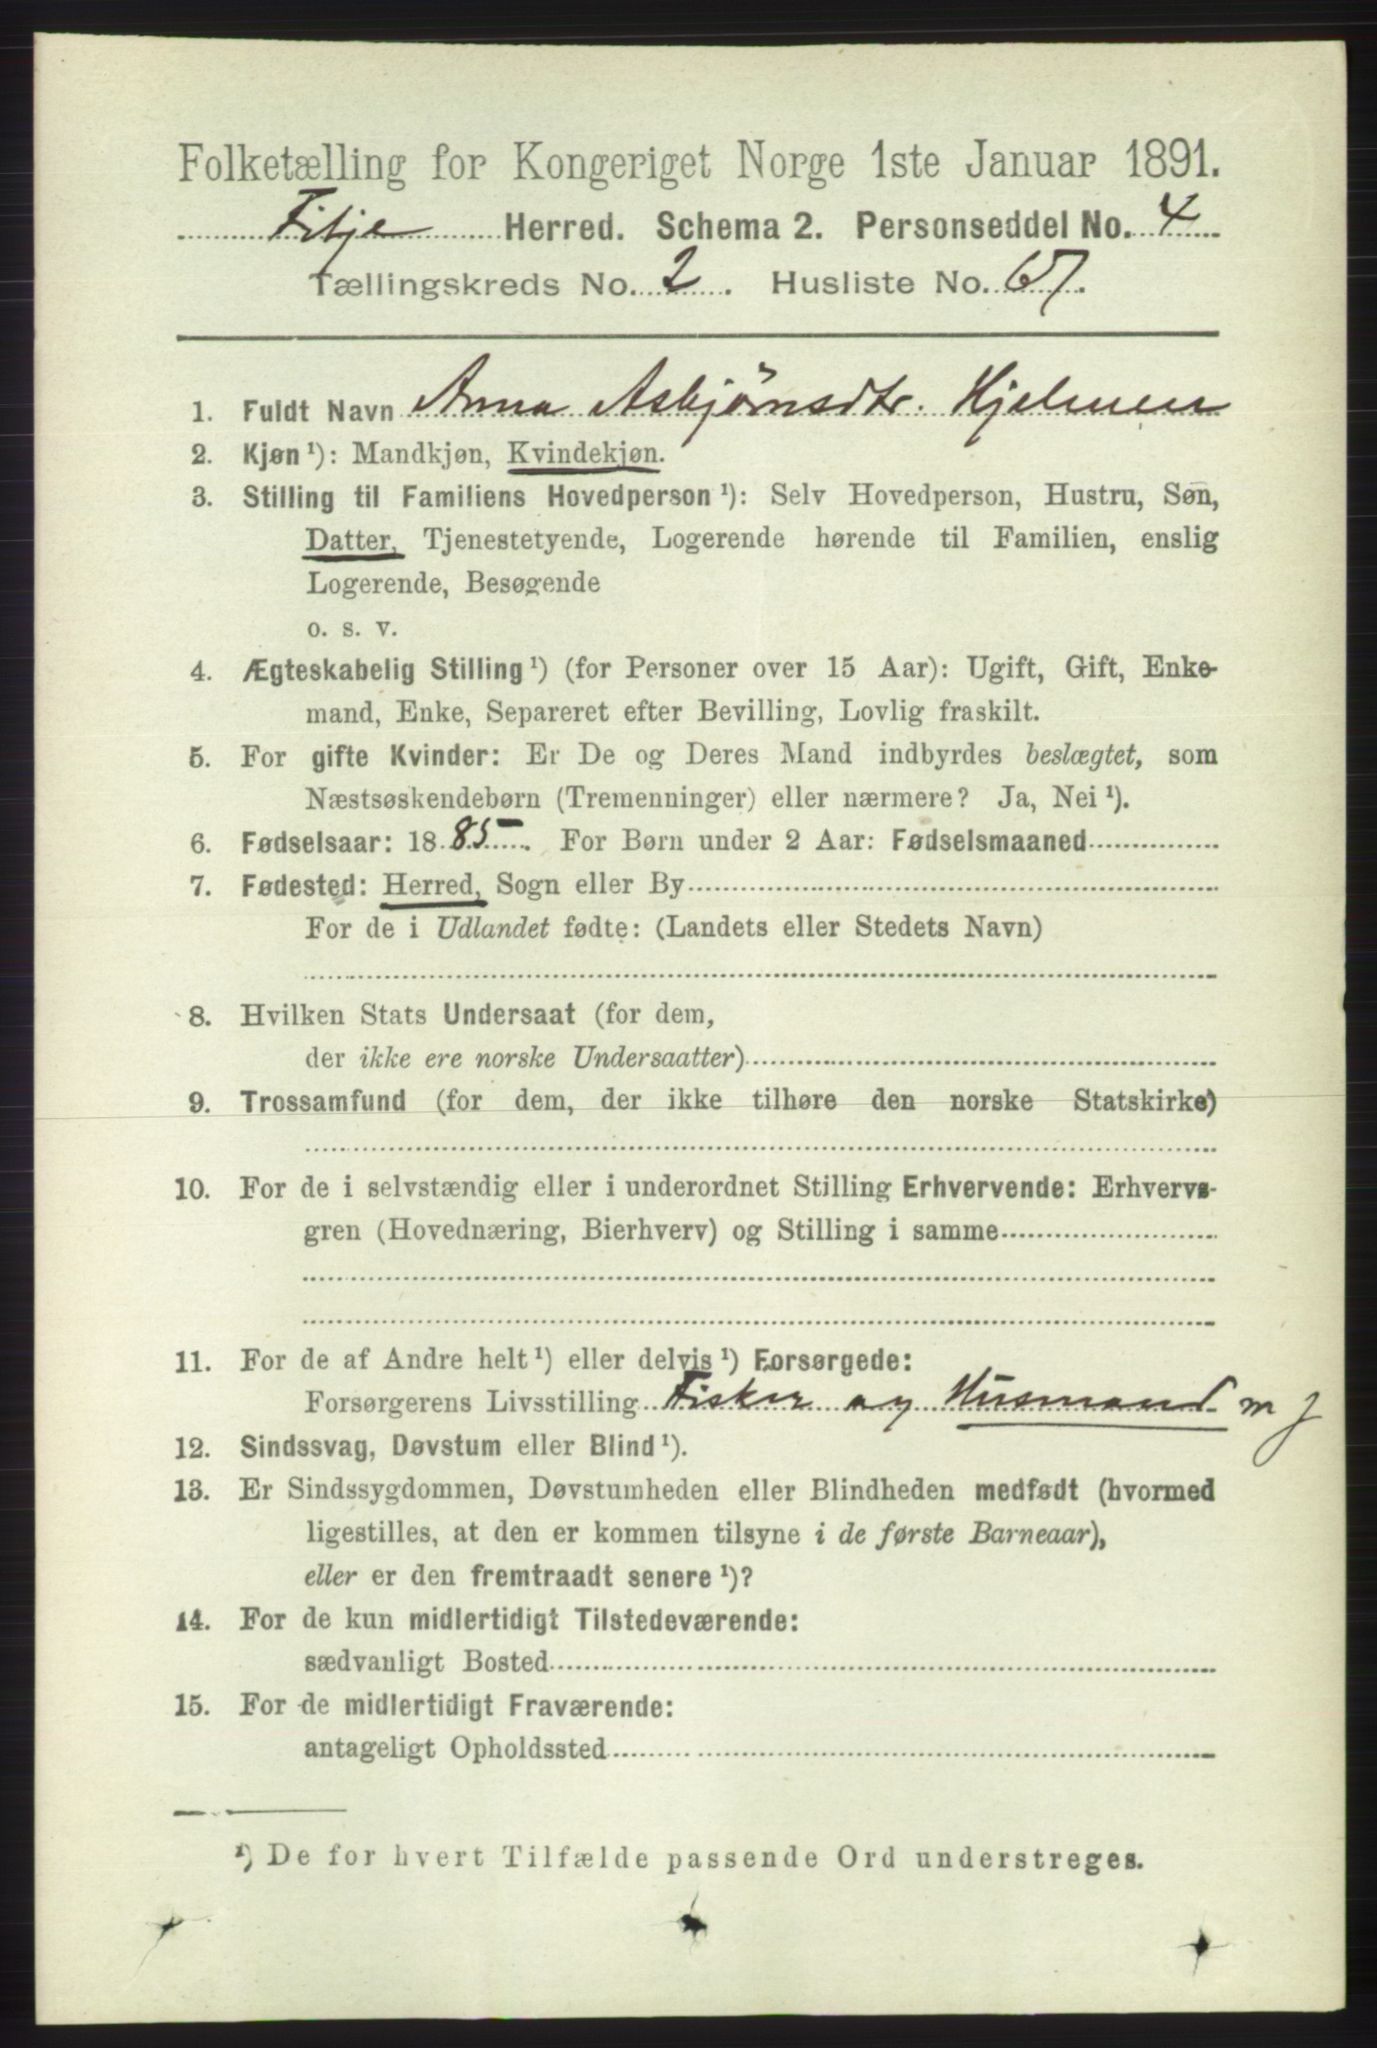 Folketælling for Kongeriget Norge 1ste Januar 1891.
Fitje Herred. Schema 2. Personseddel No. 4
Tællingskreds No. 2. Husliste No. 67.
1. Fuldt Navn Anna Asbjørnsdtr. Hjelmen
2. Kjøn ¹): Mandkjøn, Kvindekjøn.
3. Stilling til Familiens Hovedperson ¹): Selv Hovedperson, Hustru, Søn,
Datter, Tjenestetyende, Logerende hørende til Familien, enslig
Logerende, Besøgende
o. s. v.
4. Ægteskabelig Stilling ¹) (for Personer over 15 Aar): Ugift, Gift, Enke-
mand, Enke, Separeret efter Bevilling, Lovlig fraskilt.
5. For gifte Kvinder: Er De og Deres Mand indbyrdes beslægtet, som
Næstsøskendebørn (Tremenninger) eller nærmere? Ja, Nei ¹).
6. Fødselsaar: 1885. For Børn under 2 Aar: Fødselsmaaned
7. Fødested: Herred, Sogn eller By
For de i Udlandet fødte: (Landets eller Stedets Navn)
8. Hvilken Stats Undersaat (for dem,
der ikke ere norske Undersaatter)
9. Trossamfund (for dem, der ikke tilhøre den norske Statskirke)
10. For de i selvstændig eller i underordnet Stilling Erhvervende: Erhvervs-
gren (Hovednæring, Bierhverv) og Stilling i samme
11. For de af Andre helt ¹) eller delvis ¹) Forsørgede:
Forsørgerens Livsstilling Fisker og Husmand m j
12. Sindssvag, Døvstum eller Blind ¹).
13. Er Sindssygdommen, Døvstumheden eller Blindheden medfødt (hvormed
ligestilles, at den er kommen tilsyne i de første Barneaar),
eller er den fremtraadt senere ¹)?
14. For de kun midlertidigt Tilstedeværende:
sædvanligt Bosted
15. For de midlertidigt Fraværende:
antageligt Opholdssted
¹) De for hvert Tilfælde passende Ord understreges.